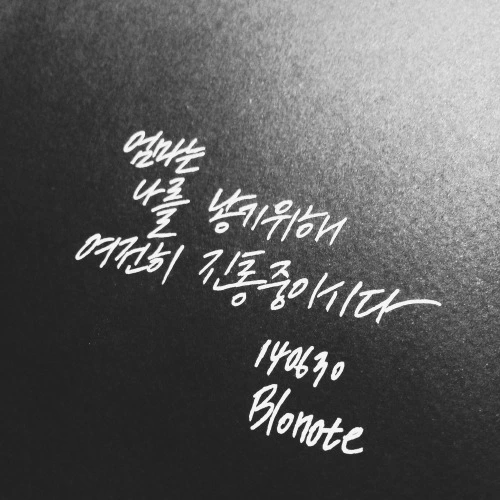 엄마는
나를 낳기위해
여전히 진통중이시다
140630
Blonote